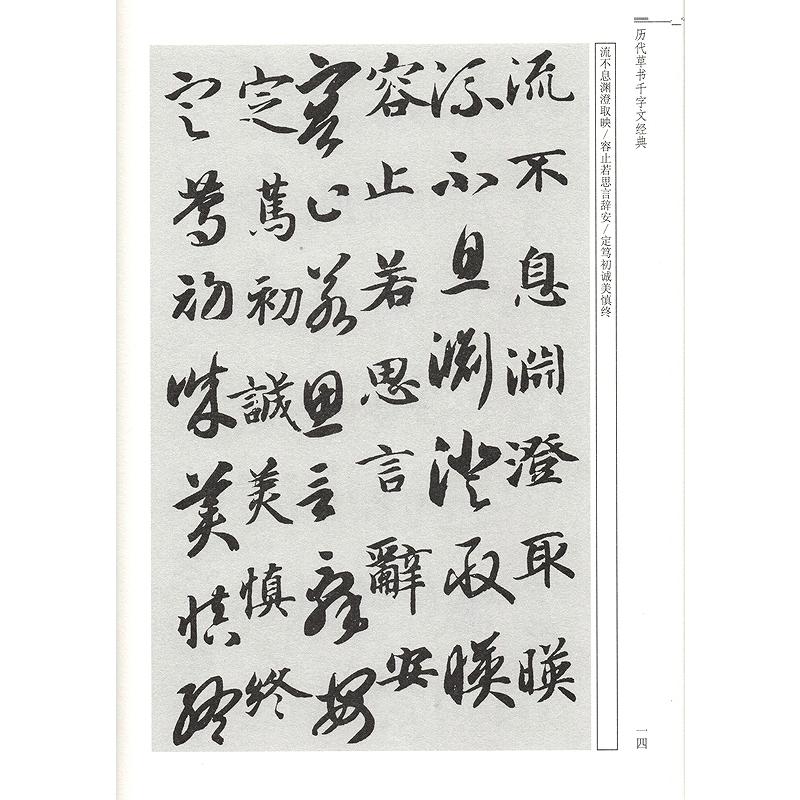 历代草书千字文经典
流不息渊澄取映/容止若思言辞安/定笃初诚美慎终
流不息淵澄取暎
流不息淵澄取暎
容止若思言辭安
容止若思言辭安
定篤初誠美慎終
定篤初誠美慎終
一四